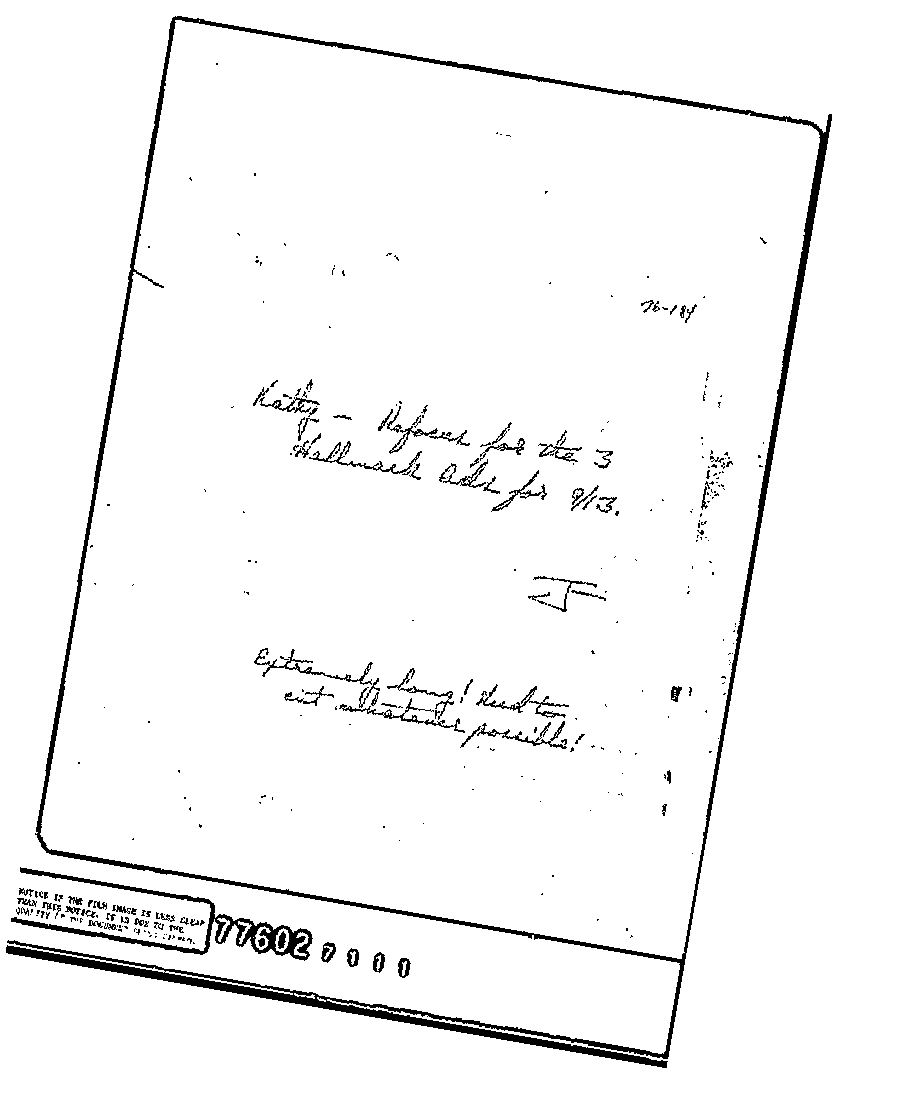 76-184
Kathy — Refaxes for the 3
Hallmark Ads for 9/13.
J
Extremely long! Need to
cut whatever possible!
NOTICE IF THE FILM IMAGE IS LESS CLEAR
THAN THIS NOTICE, IT IS DUE TO THE
QUALITY OF THE DOCUMENT
77602 7 1 1 1